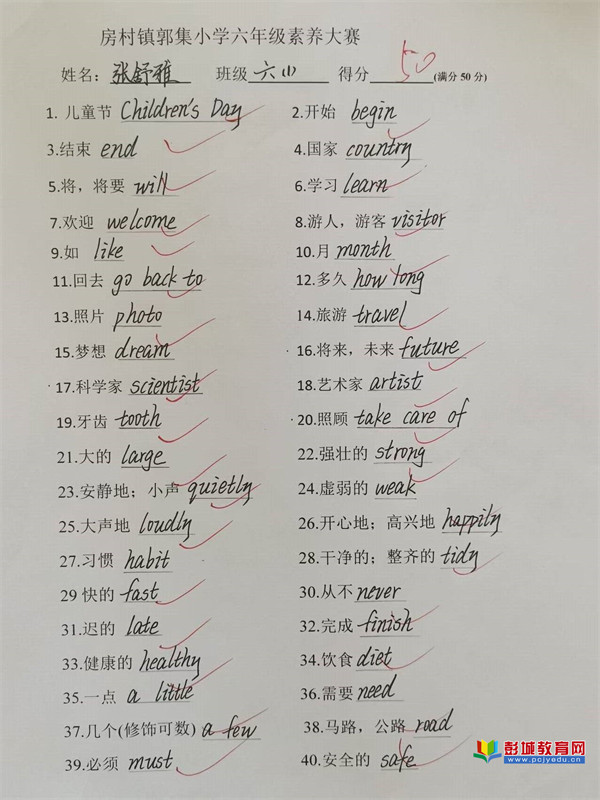 房村镇郭集小学六年级素养大赛
姓名：张舒雅 班级 六(1) 得分 50 (满分 50 分)
1. 儿童节 Children's Day 2.开始 begin
3.结束 end 4.国家 country
5.将，将要 will 6.学习 learn
7.欢迎 welcome 8.游人，游客 visitor
9.如 like 10.月 month
11.回去 go back to 12.多久 how long
13.照片 photo 14.旅游 travel
15.梦想 dream 16.将来，未来 future
17.科学家 scientist 18.艺术家 artist
19.牙齿 tooth 20.照顾 take care of
21.大的 large 22.强壮的 strong
23.安静地；小声 quietly 24.虚弱的 weak
25.大声地 loudly 26.开心地；高兴地 happily
27.习惯 habit 28.干净的；整齐的 tidy
29 快的 fast 30.从不 never
31.迟的 late 32.完成 finish
33.健康的 healthy 34.饮食 diet
35.一点 a little 36.需要 need
37.几个(修饰可数) a few 38.马路，公路 road
39.必须 must 40.安全的 safe
彭城教育网
www.pcjyedu.cn